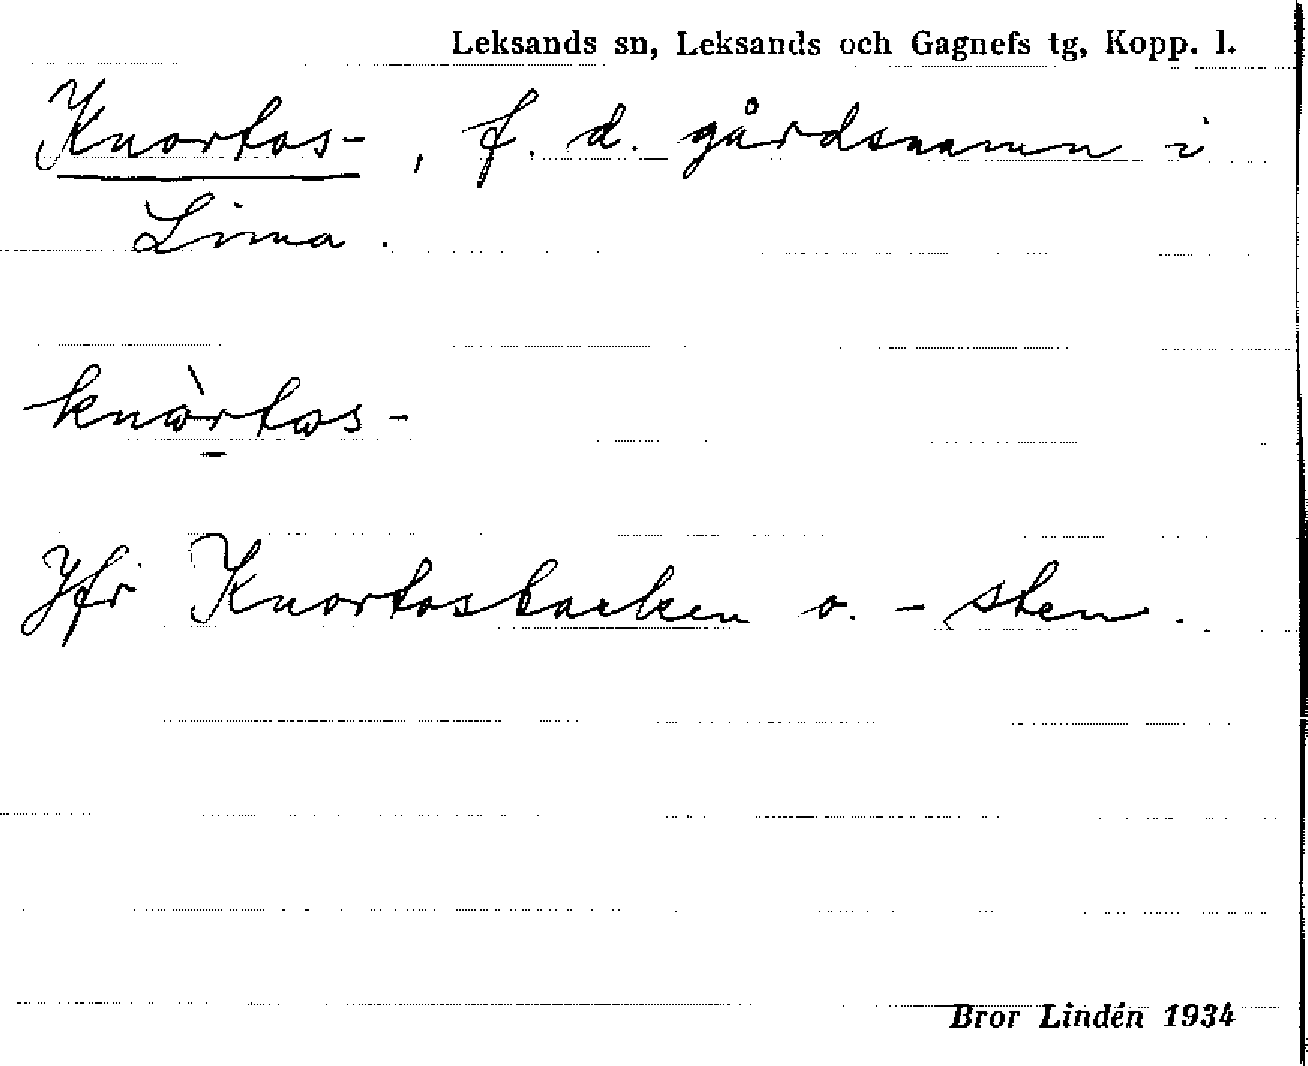 Leksands sn, Leksands och Gagnefs tg, Kopp. l.
Knortos-, f. d. gårdsnamn i
Lima.
knòrtos-
Jfr Knortosbacken o. -sten.
Bror Lindén 1934